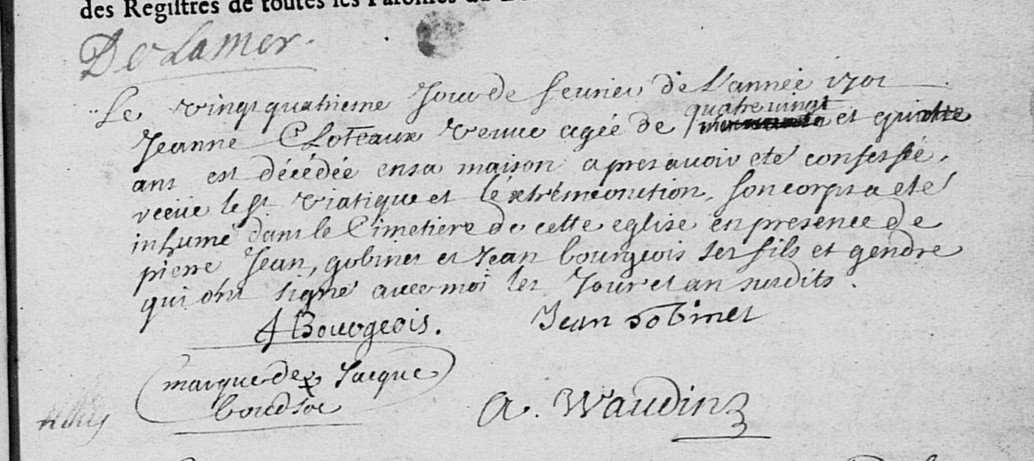 des Registres de toutes les Paroisses du
De Lamer.
Le vingt quatrieme Jour de fevrier de L'année 1701
quatre vingt
Jeanne CLoteaux veuve agée de et quattre
ans est décédée en sa maison apres avoir eté confessée,
receue le St. viatique et Lextrémeonction, son corps a eté
inhumé dans le Cimetiere de cette eglise en presence de
pierre Jean, gobinet et Jean bourgeois ses fils et gendre
qui ont signé avec moi les Jour et an susdits.
Bourgeois. Jean Gobinet
marque de x Jacque
A. Waudin